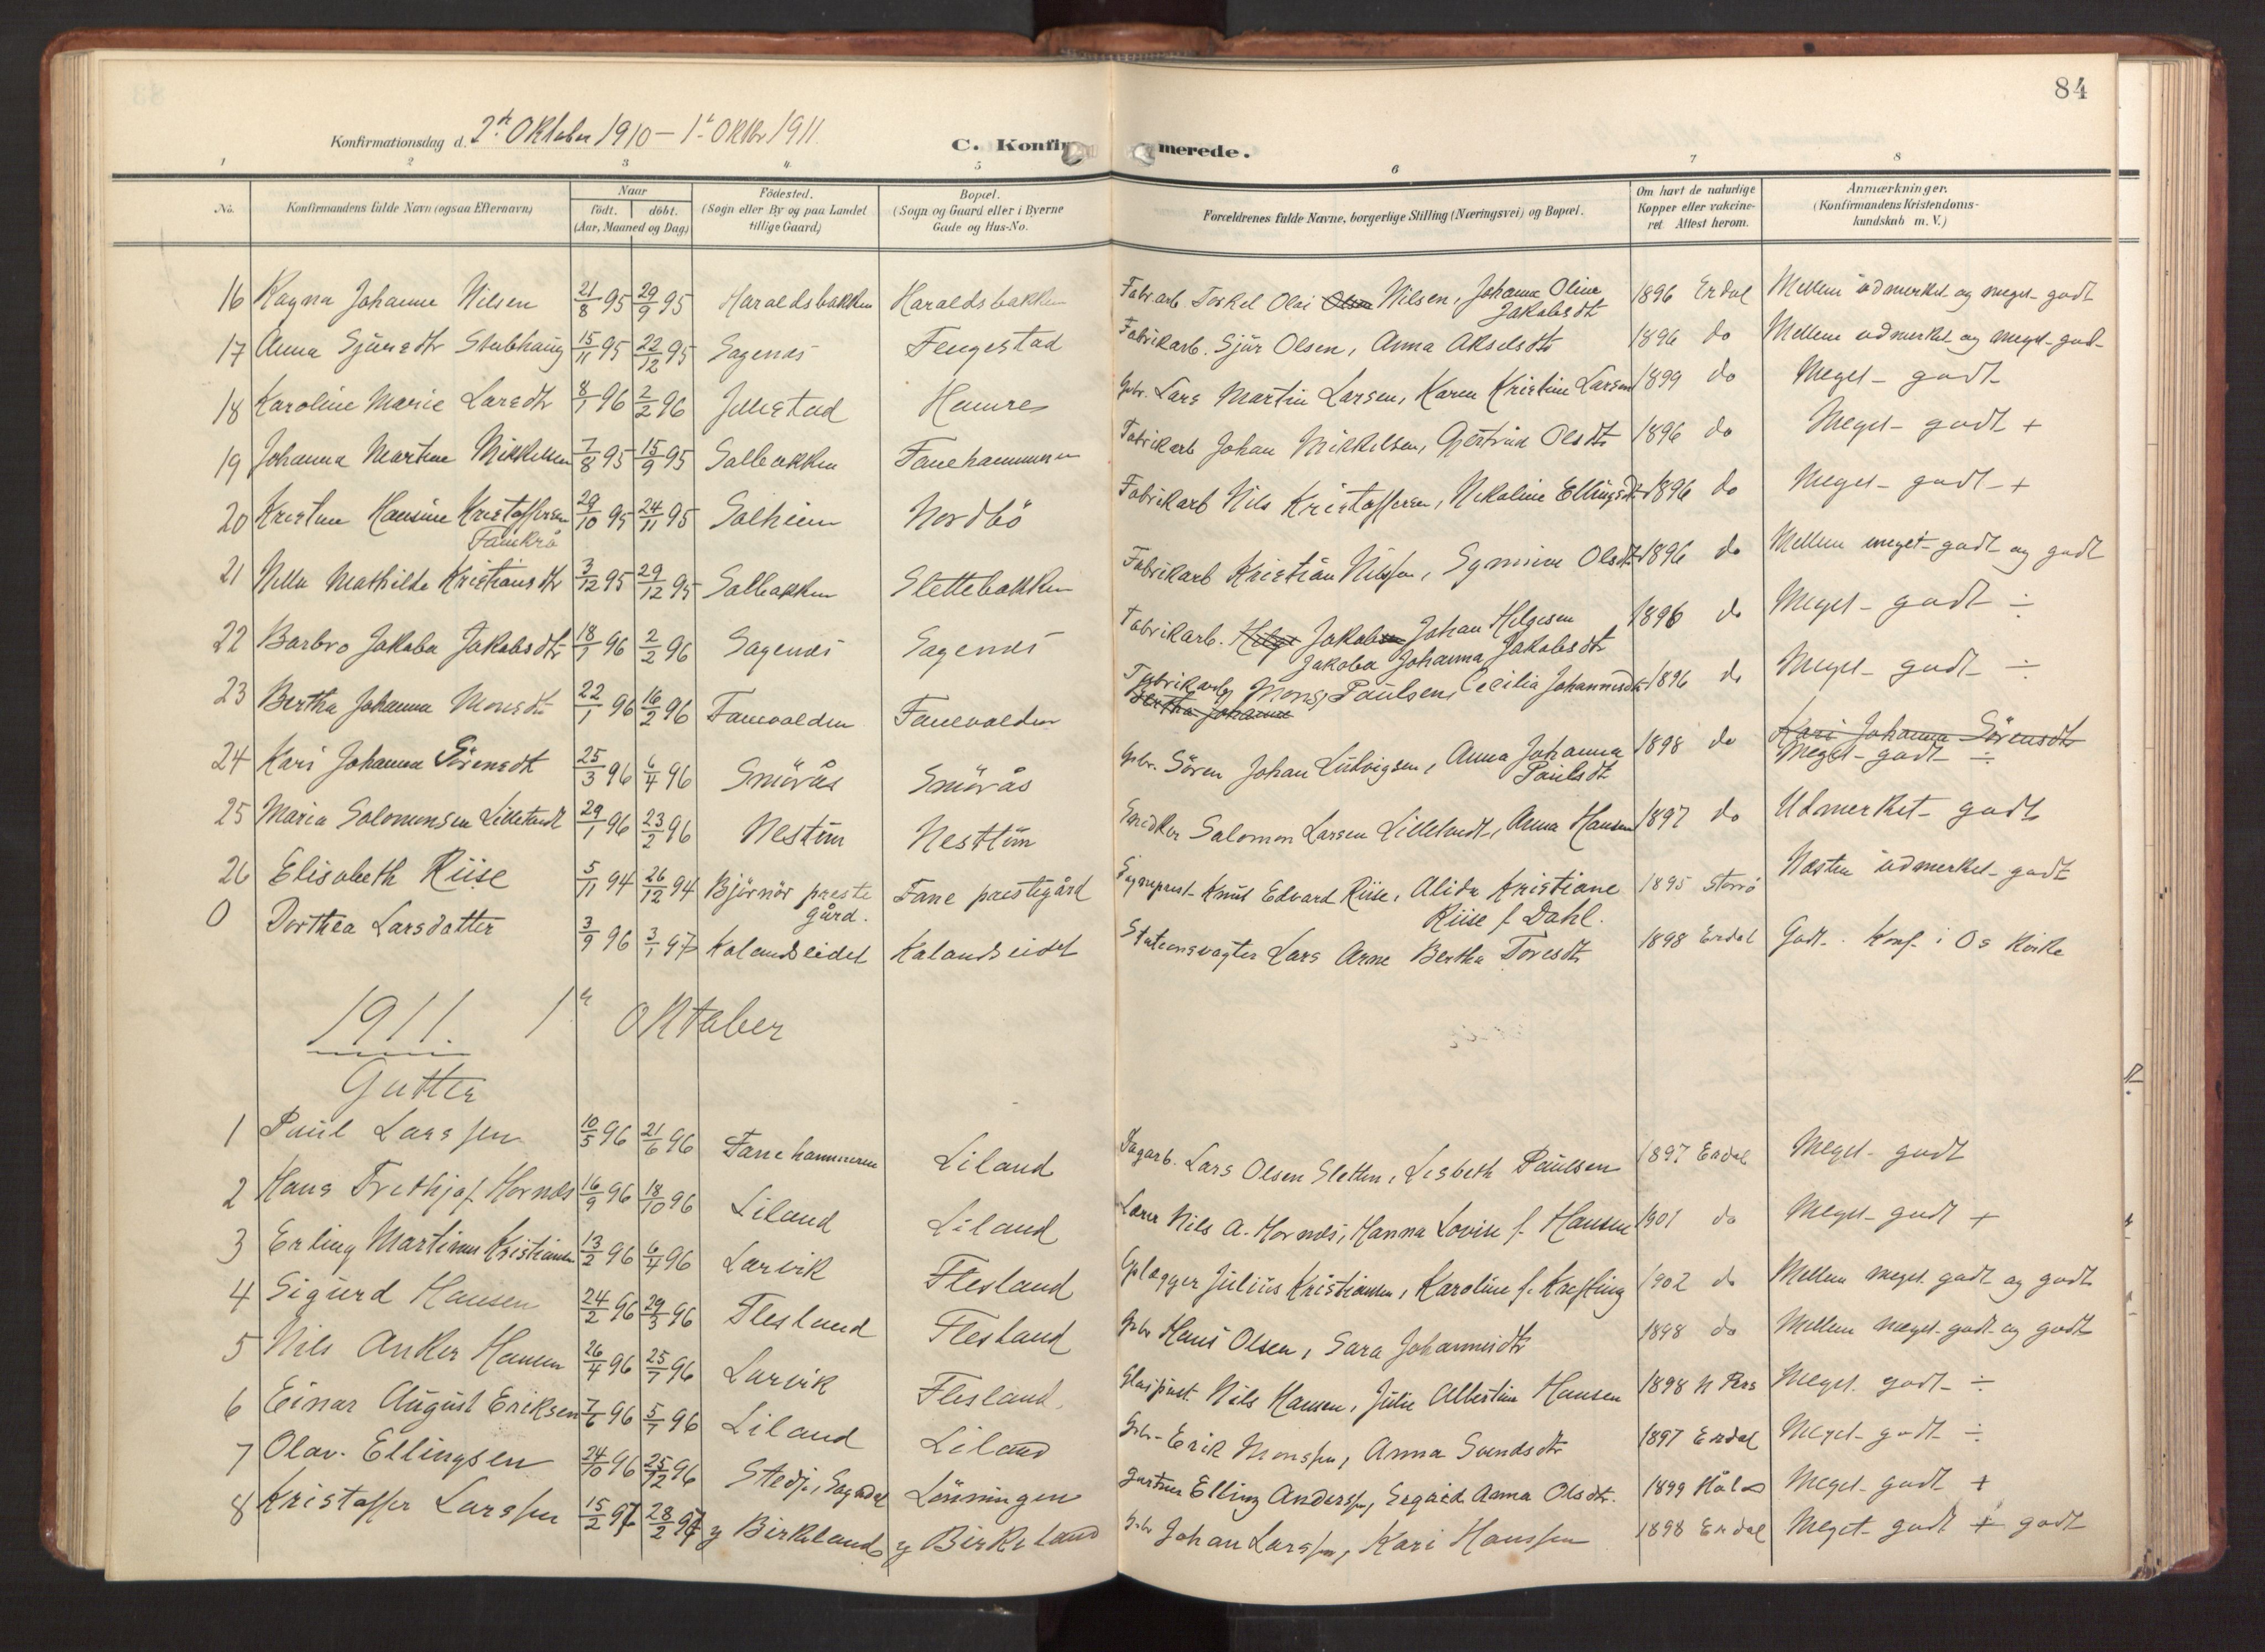 84
Konfirmationsdag d. 2den Oktober 1910 – 1ste Oktbr 1911.
C. Konfirmerede.
1 2 3 4 5 6 7 8
No. Konfirmandens fulde Navn (ogsaa Efternavn) Naar födt. döbt. (Aar, Maaned og Dag) Födested. (Sogn eller By og paa Landet tillige Gaard) Bopæl. (Sogn og Gaard eller i Byerne Gade og Hus-No. Forældrenes fulde Navne, borgerlige Stilling (Næringsvei) og Bopæl. Om havt de naturlige Kopper eller vakcineret. Attest herom. Anmærkninger. (Konfirmandens Kristendomskundskab m. V.)
16 Ragna Johanne Nilsen 21/8 95 29/9 95 Haraldsbakken Haraldsbakken Fabrarb. Torkel Olai Olsen Nilsen, Johanna Oline Jakobsdt 1896 Erdal Mellem udmerket og meget godt
17 Anna Sjursdtr Stubhaug 15/11 95 22/12 95 Sagenes Fengestad Fabrikarb. Sjur Olsen, Anna Akselsdtr 1896 do Mellem udmerket og meget god
18 Karoline Marie Larsdtr 8/1 96 2/2 96 Jillestad Hamre Gbr. Lars Martin Larsen, Karen Kristine Larsen 1899 do Meget godt
19 Johanna Martine Mikkelsen 7/8 95 15/9 95 Solbakken Fanehammeren Fabrikarb Johan Mikkelsen, Gjertrud Olsdtr 1896 do Meget godt +
20 Kristine Hansine Kristoffersen 29/10 95 24/11 95 Solheim Nordbö Fabrikarb Nils Kristoffersen, Nikoline Ellingsdtr 1896 do Meget godt +
Fanekrå
21 Nella Mathilde Kristiansdtr 3/12 95 29/12 95 Solbakken Slettebakken Fabrikarb Kristian Nilssen, Synnive Olsdtr 1896 do Mellem meget godt og godt
22 Barbro Jakoba Jakobsdtr 18/1 96 2/2 96 Sagenes Sagenes Fabrikarb. Helge Jakob Johan Helgesen Jakoba Johanna Jakobsdtr 1896 do Meget godt ÷
23 Bertha Johanna Monsdt 22/1 96 16/2 96 Fanevolden Fanevolden Fabrikarb Mons Paulsen, Cecilia Johannesdtr 1896 do Meget godt ÷
Bertha Johanne
24 Kari Johanna Sörensdt 25/3 96 6/4 96 Smörås Smörås Gbr. Sören Johan Ludvigsen, Anna Johanna Paulsdt 1898 do Kari Johanna Sörensdtr Meget godt ÷
25 Maria Salomonsen Lilletvedt 29/1 96 23/2 96 Nestun Nesttun Snedker Salomon Larsen Lilletvedt, Anna Hansen 1897 do Udmerket godt
26 Elisabeth Riise 5/11 94 26/12 94 Björnör preste gård. Fane prestegård Sogneprest Knut Edvard Riise, Alida Kristiane Riise f. Dahl. 1895 Storö Næsten udmerket godt
0 Dorthea Larsdatter 3/9 96 3/1 97 Kalandseidet Kalandseidet Stationsvogter Lars Arne Bertha Toresdtr 1898 Erdal Godt. Konf. i Os Kirke
1911. 1ste Oktober
Gutter
1 Paul Larssen 10/5 96 21/6 96 Fanehammeren Liland Dagarb. Lars Olsen Sletten, Lisbeth Paulsen 1897 Erdal Meget godt
2 Hans Frithjof Hornæs 16/9 96 18/10 96 Liland Liland Lærer Nils A. Hornæs, Hanna Lovise f. Hansen 1901 do Meget godt +
3 Erling Martinus Kristiansen 13/2 96 6/4 96 Larvik Flesland Julius Kristiansen, Karoline f. Krefting 1902 do Mellem meget godt og godt
4 Sigurd Hansen 24/2 96 29/3 96 Flesland Flesland Gbr Hans Olsen, Sara Johannesdtr 1898 do Mellem meget godt og godt
5 Nils Anker Hansen 26/4 96 25/7 96 Larvik Flesland. Glaspust. Nils Hansen, Julie Albertine Hansen 1898 Meget godt ÷
6 Einar August Eriksen 7/6 96 5/7 96 Liland Liland Gbr Erik Monssen, Anna Svendsdtr 1897 Erdal Meget godt ÷
7 Olav Ellingsen 24/10 96 25/12 96 Stedje, Sogndal Lönningen Gartner Elling Anderssen, Anna Olsdtr. 1899 Meget godt +
8 Kristoffer Larssen 15/2 97 28/2 97 y Birkeland y Birkeland Gbr Johan Larssen, Kari Hanssen 1898 Erdal Meget godt + godt